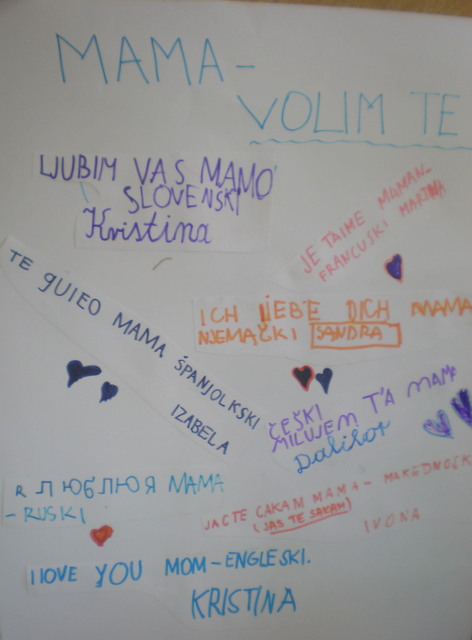 MAMA-
VOLIM TE
LJUBIM VAS MAMO
SLOVENSKI
Kristina
JE TAIME MAMAN-
FRANCUSKI MARINA
TE QUIEO MAMA ŠPANJOLKSKI
IZABELA
ICH LIEBE DICH MAMA
NJEMAČKI SANDRA
ČEŠKI
MILUJEM T'A MAMA
Dalibor
Я ЛЮБЛЮЯ МАМА
- RUSKI
JАС ТЕ САКАМ МАМА-
(JAS TE SAKAM)
IVONA
I LOVE YOU MOM-ENGLESKI.
KRISTINA